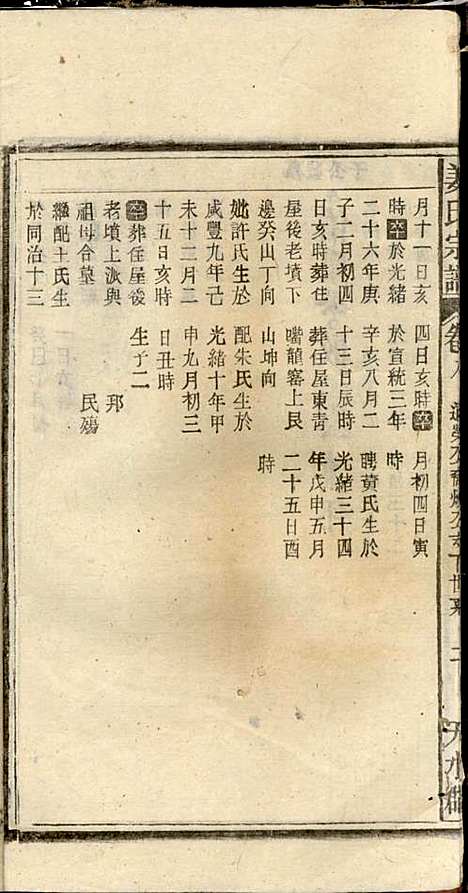 姜氏宗譜
卷八
二
天水郡
月十一日亥
時卒於光緒
二十六年庚
子二月初四
日亥時葬住
屋後老墳下
邊癸山丁向
妣許氏生於
咸豐九年己
未十二月二
十五日亥時
卒葬住屋後
老墳上派與
祖母合墓
繼配王氏生
於同治十三
四日亥時卒
於宣統三年
辛亥八月二
十三日辰時
葬住屋東青
嘴龍窩上艮
山坤向
配朱氏生於
光緒十年甲
申九月初三
日丑時
生子二
邦
民殤
月初四日寅
時
聘黃氏生於
光緒三十四
年戊申五月
二十五日酉
時